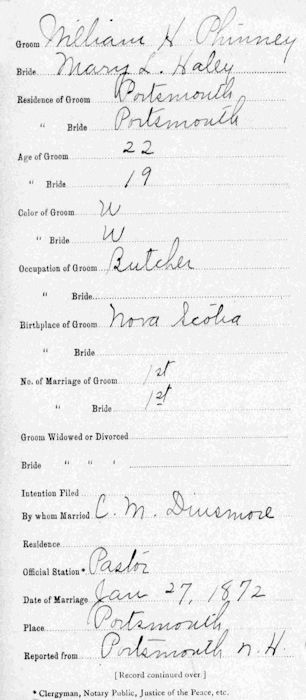 Groom William H. Phinney
Bride Mary L. Haley
Residence of Groom Portsmouth
" Bride Portsmouth
Age of Groom 22
" Bride 19
Color of Groom W
" Bride W
Occupation of Groom Butcher
" Bride
Birthplace of Groom Nova Scotia
" Bride
No. of Marriage of Groom 1st
" Bride 1st
Groom Widowed or Divorced
Bride " " "
Intention Filed
By whom Married C. M. Dinsmore
Residence
Official Station * Pastor
Date of Marriage Jan 27, 1872
Place Portsmouth
Reported from Portsmouth N. H.
[Record continued over.]
* Clergyman, Notary Public, Justice of the Peace, etc.